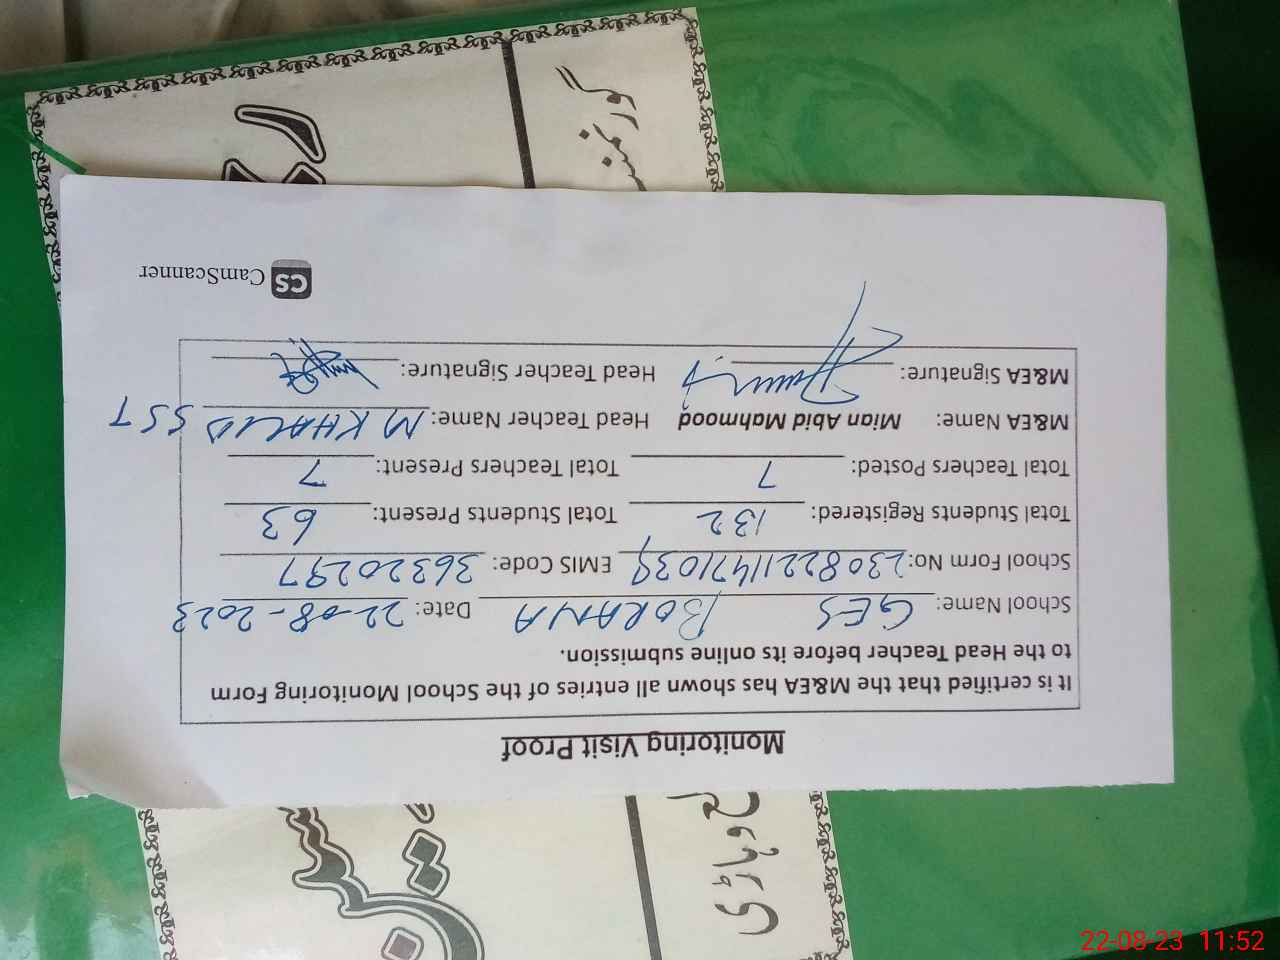 Monitoring Visit Proof
It is certified that the M&EA has shown all entries of the School Monitoring Form
to the Head Teacher before its online submission.
School Name: GES BORANA Date: 22-08-2023
School Form No: 23082211471039 EMIS Code: 36320297
Total Students Registered: 132 Total Students Present: 63
Total Teachers Posted: 7 Total Teachers Present: 7
M&EA Name: Mian Abid Mahmood Head Teacher Name: M KHALID SST
M&EA Signature: Head Teacher Signature:
CS CamScanner
22-08-23 11:52